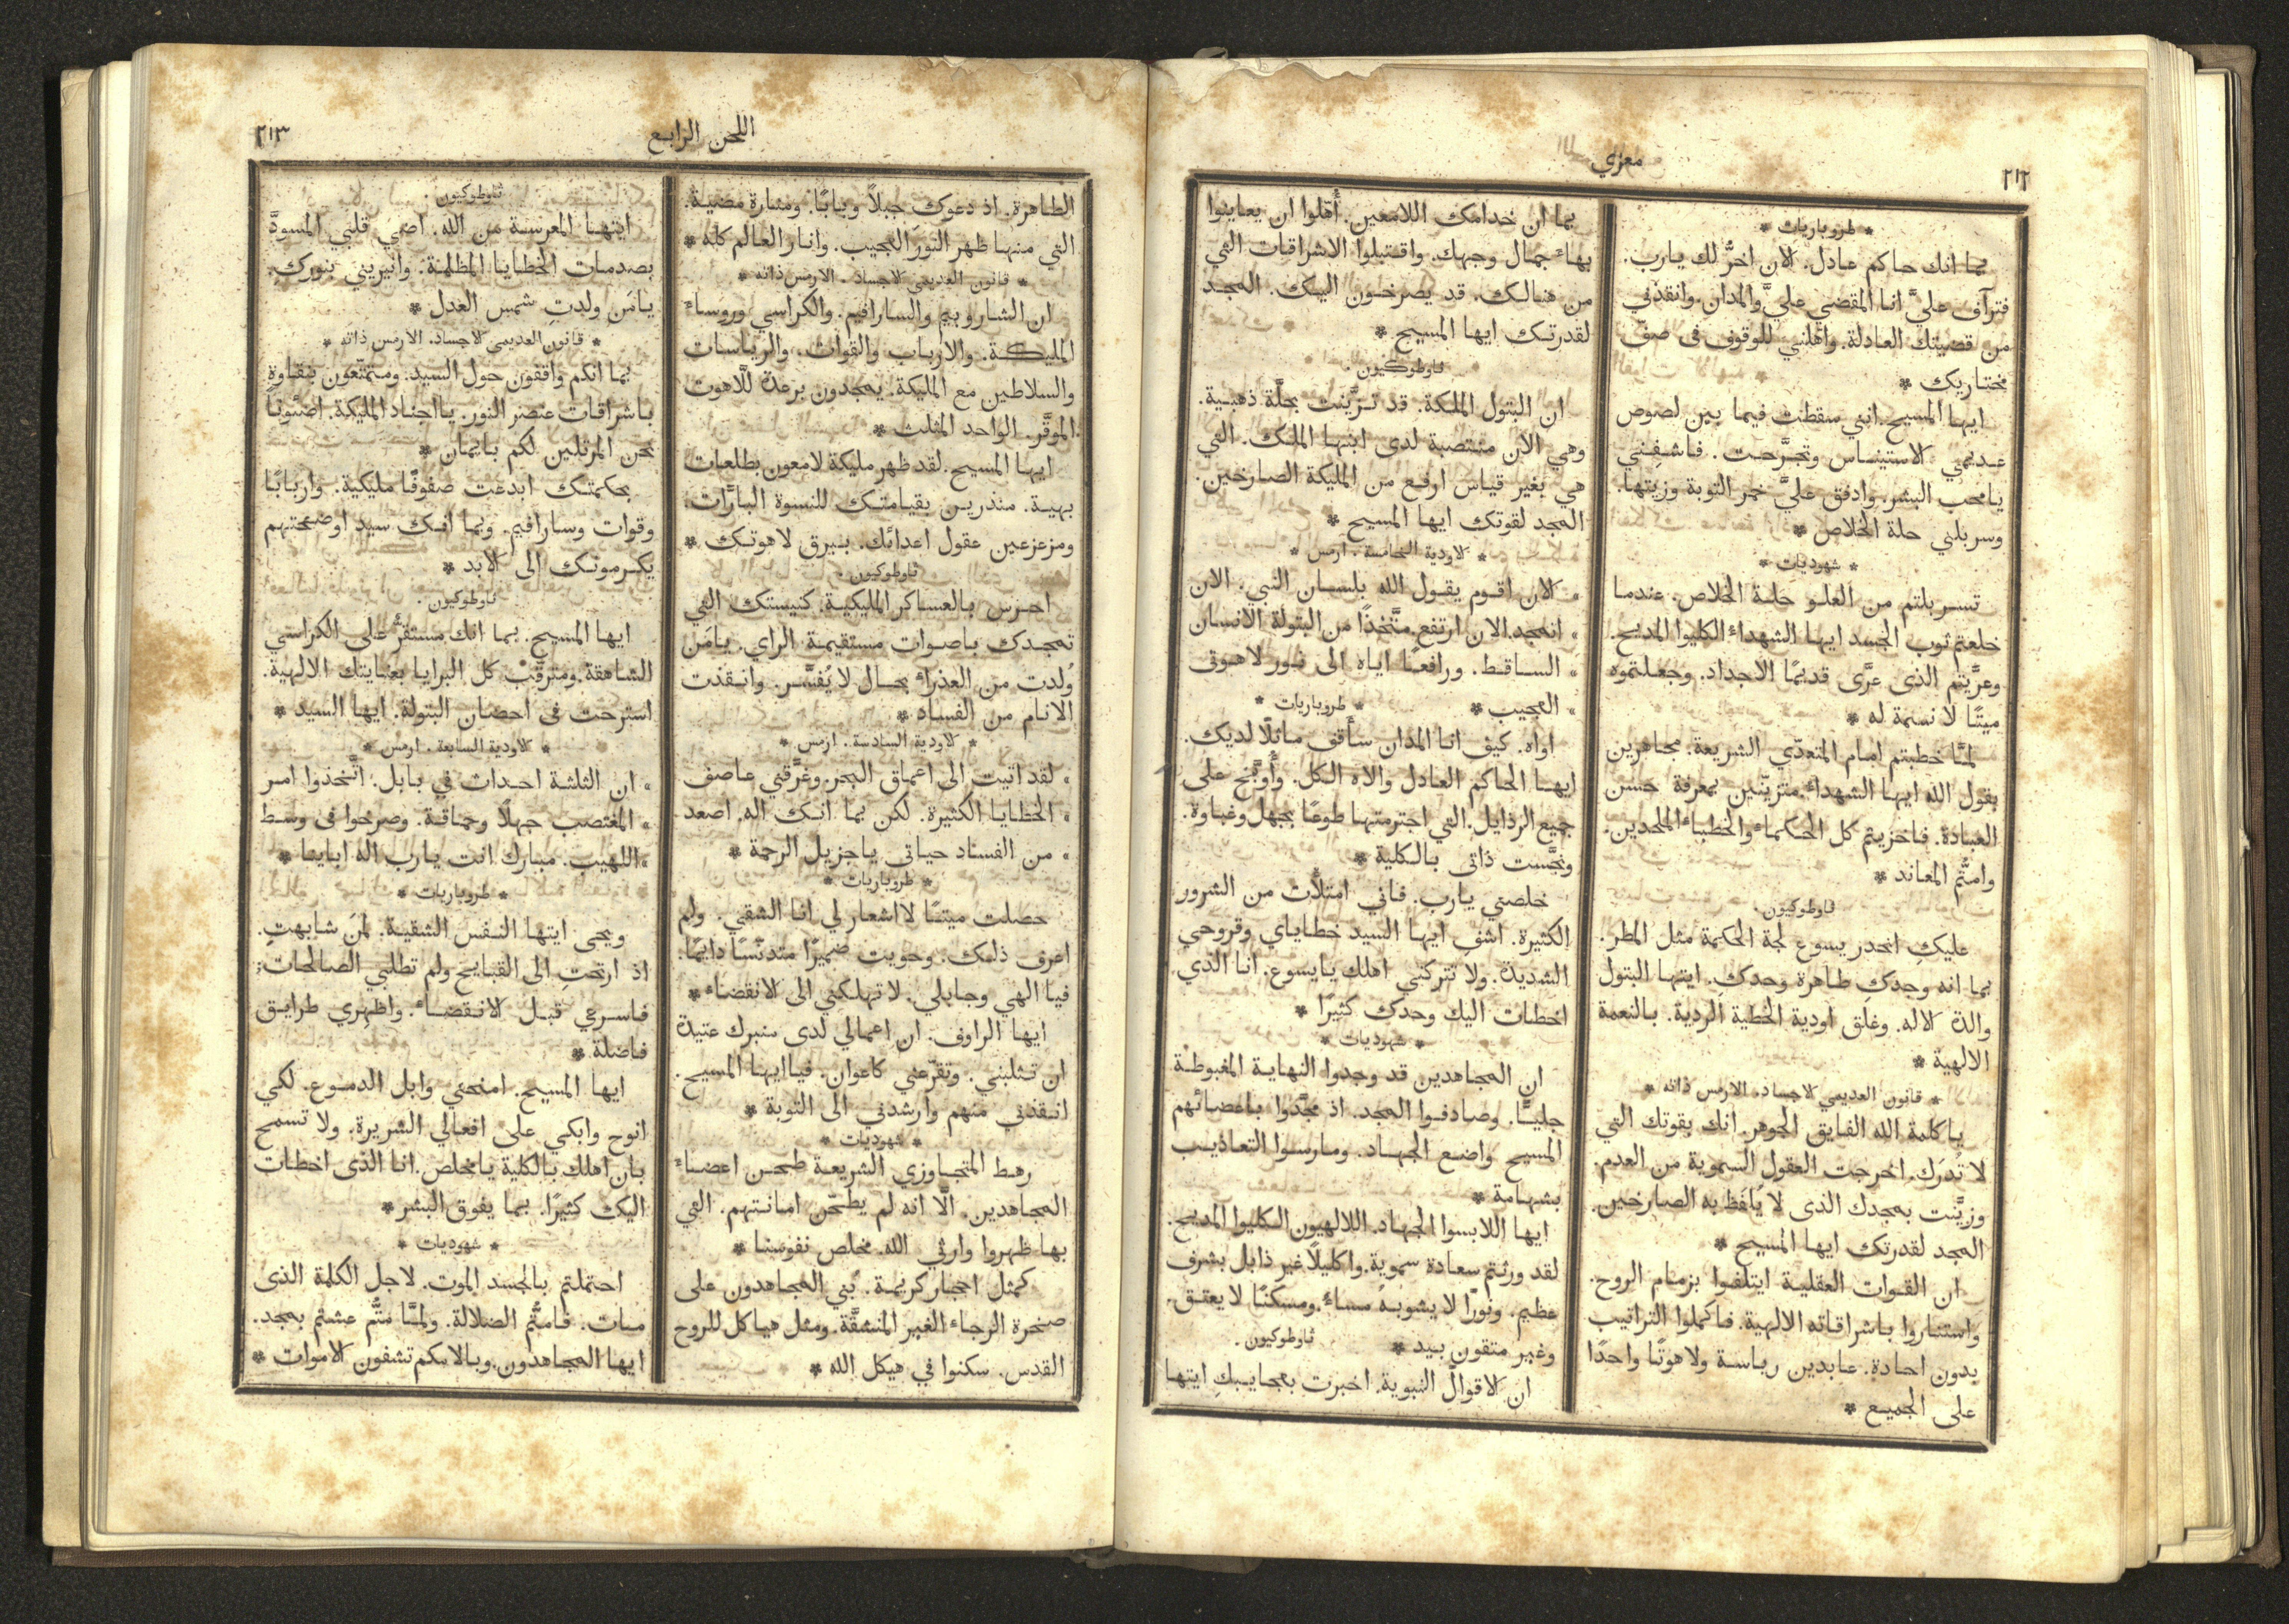 ٢١٢
معزي
* طروباريات *
بما انك حاكم عادل. الان اخرُّ لك يارب.
فترآف عليَّ انا المقضي عليَّ والمدان. وانقذني
من قضيتك العادلة. واهلني للوقوف فى صف
مختاريك *
ايها المسيح. انني سقطت فيما بين لصوص
عديمي الاستيناس وتجرَّحت. فاشفِني
يامحب البشر. وادفق عليَّ خمر التوبة وزيتها.
وسربلني حلة الخلاص *
* شهوديات *
تسربلتم من العلو حلة الخلاص. عندما
خلعتم ثوب الجسد ايها الشهداء الكليوا المديح.
وعرَّيتم الذى عرَّى قديمًا الاجداد. وجعلتموه
ميتًا لا نسمة له *
لمَّا خطبتم امام المتعدّي الشريعة. مجاهرين
بقول الله ايها الشهداء. متزيّنين بمعرفة حسن
العبادة. فاخزيتم كل الحكماء والخطباء الملحدين.
وامتُّم المعاند *
ثاوطوكيون.
عليكِ انحدر يسوع لجة الحكمة مثل المطر.
بما انه وجدكِ طاهرة وحدك. ايتها البتول
والدة الاله. وغلق اودية الخطية الردية. بالنعمة
الالهية *
* قانون العديمي الاجساد. الارمس ذاته *
ياكلمة الله الفايق الجوهر. انك بقوتك التي
لا تُدرَك. اخرجت العقول السموية من العدم.
وزيَّنت بمجدك الذى لا يُلفَظ به الصارخين.
المجد لقدرتك ايها المسيح *
ان القوات العقلية ايتلفوا بزمام الروح.
واستناروا باشراقاته الالهية. فاكملوا التراتيب
بدون احادة. عابدين رياسة ولاهوتًا واحدًا
على الجميع *
بما ان خدامك اللامعين. أُهّلوا ان يعاينوا
بهاء جمال وجهك. واقتبلوا الاشراقات التي
من هنالك. قد يصرخون اليك. المجد
لقدرتك ايها المسيح *
ثاوطوكيون.
ان البتول الملكة. قد تزيَّنت بحلَّة ذهبية.
وهي الان منتصبة لدى ابنها الملك. التي
هي بغير قياس ارفع من المليكة الصارخين.
المجد لقوتك ايها المسيح *
* الاودية الخامسة. ارمس *
» الان اقوم يقول الله بلسان النبي. الان
» اتمجد. الان ارتفع. متَّخذًا من البتولة الانسان
» الساقط. ورافعًا اياه الى نور لاهوتى
» العجيب * * طروباريات *
اواه. كيف انا المدان سأقف ماثلًا لديك.
ايها الحاكم العادل والاه الكل. وأُوبَّخ على
جميع الرذايل. التي اجترمتها طوعًا بجهل وغباوة.
ونجَّست ذاتى بالكلية *
خلصني يارب. فاني امتلأت من الشرور
الكثيرة. اشفِ ايها السيد خطاياي وقروحي
الشديدة. ولا تتركني اهلك يايسوع. انا الذي
اخطات اليك وحدك كثيرًا *
* شهوديات *
ان المجاهدين قد وجدوا النهاية المغبوطة
جليًّا. وصادفوا المجد. اذ مجَّدوا باعضائهم
المسيح واضع الجهاد. ومارسوا التعاذيب
بشهامة *
ايها اللابسوا الجهاد. اللالهيون الكليوا المديح.
لقد ورثتم سعادة سموية. واكليلًا غير ذابل بشرف
عظيم. ونورًا لا يشوبهُ مساء. ومسكنًا لا يعتق.
وغير متقون بيد * ثاوطوكيون.
ان الاقوال النبوية. اخبرت بعجايبكِ ايتها
اللحن الرابع
٢١٣
الطاهرة. اذ دعوكِ جبلًا وبابًا. ومنارة مضية.
التي منها ظهر النور العجيب. وانار العالم كله *
* قانون العديمى الاجساد. الارمس ذاته *
ان الشاروبيم والسارافيم. والكراسي وروساء
المليكة. والارباب والقوات. والرياسات
والسلاطين مع المليكة. يمجدون برعدة للَّاهوت
الموقَّر. الواحد المثلث *
ايها المسيح. لقد ظهر مليكة لامعون بطلعات
بهية. منذرين بقيامتك للنسوة البارَّات.
ومزعزعين عقول اعدائك. ببرق لاهوتك *
ثاوطوكيون.
احرس بالعساكر المليكية. كنيستك التي
تمجدك باصوات مستقيمة الراي. يامَن
وُلدت من العذراء بحال لا يُفسَّر. وانقذت
الانام من الفساد *
* الاودية السادسة. ارمس *
» لقد اتيت الى اعماق البحر. وغرَّقني عاصف
» الخطايا الكثيرة. لكن بما انك اله. اصعد
» من الفساد حياتى ياجزيل الرحمة *
* طروباريات *
حصلت ميتًا لااشعار لي انا الشقي. ولم
اعرف ذلك. وحويت ضميرًا متدنّسًا دايمًا.
فيا الهي وجابلي. لا تهلكني الى الانقضاء *
ايها الراوف. ان اعمالي لدى منبرك عتيدة
ان تثلبني. وتقرّعني كاعوان. فياايها المسيح.
انقذني منهم وارشدني الى التوبة *
* شهوديات *
رهط المتجاوزي الشريعة طحن اعضاء
المجاهدين. الَّا انه لم يطحّن امانتهم. التي
بها ظهروا وارثي الله. مخلص نفوسنا *
كمثل احجار كريمة. بُني المجاهدون على
صخرة الرجاء الغير المنشقَّة. ومثل هياكل للروح
القدس. سكنوا في هيكل الله *
ثاوطوكيون.
ايتها المعرسة من الله. اضي قلبي المسودَّ
بصدمات الخطايا المظلمة. وانيريني بنورك.
يامَن ولدتِ شمس العدل *
* قانون العديمى الاجساد. الارمس ذاته *
بما انكم واقفون حول السيد. ومتمتّعون بنقاوة
باشراقات عنصر النور. يااجناد المليكة. اضئونا
نحن المرتلين لكم بايمان *
بحكمتك ابدعت صفوفًا مليكية. واربابًا
وقوات وسارافيم. وبما انك سيد اوضحتهم
يكرمونك الى الابد *
ثاوطوكيون.
ايها المسيح. بما انك مستقرٌّ على الكراسي
الشاهقة. ومترقّب كل البرايا بعنايتك الالهية.
استرحت فى احضان البتولة. ايها السيد *
* الاودية السابعة. ارمس *
» ان الثلثة احداث في بابل. اتَّخذوا امر
» المغتصب جهلًا وحماقة. وصرخوا فى وسط
» اللهيب. مبارك انت يارب اله اباينا *
* طروباريات *
ويحى ايتها النفس الشقية. لمَن شابهتِ.
اذ ارتحتِ الى القبايح ولم تطلبي الصالحات.
فاسرعي قبل الانقضاء. واظهري طرايق
فاضلة *
ايها المسيح. امنحني وابل الدموع. لكي
انوح وابكي على افعالي الشريرة. ولا تسمح
بان اهلك بالكلية يامخلص. انا الذى اخطات
اليك كثيرًا. بما يفوق البشر *
* شهوديات *
احتملتم بالجسد الموت. لاجل الكلمة الذى
مات. فامتُّم الضلالة. ولمَّا متُّم عشتم بمجد.
ايها المجاهدون. وبالامكم تشفون الاموات *